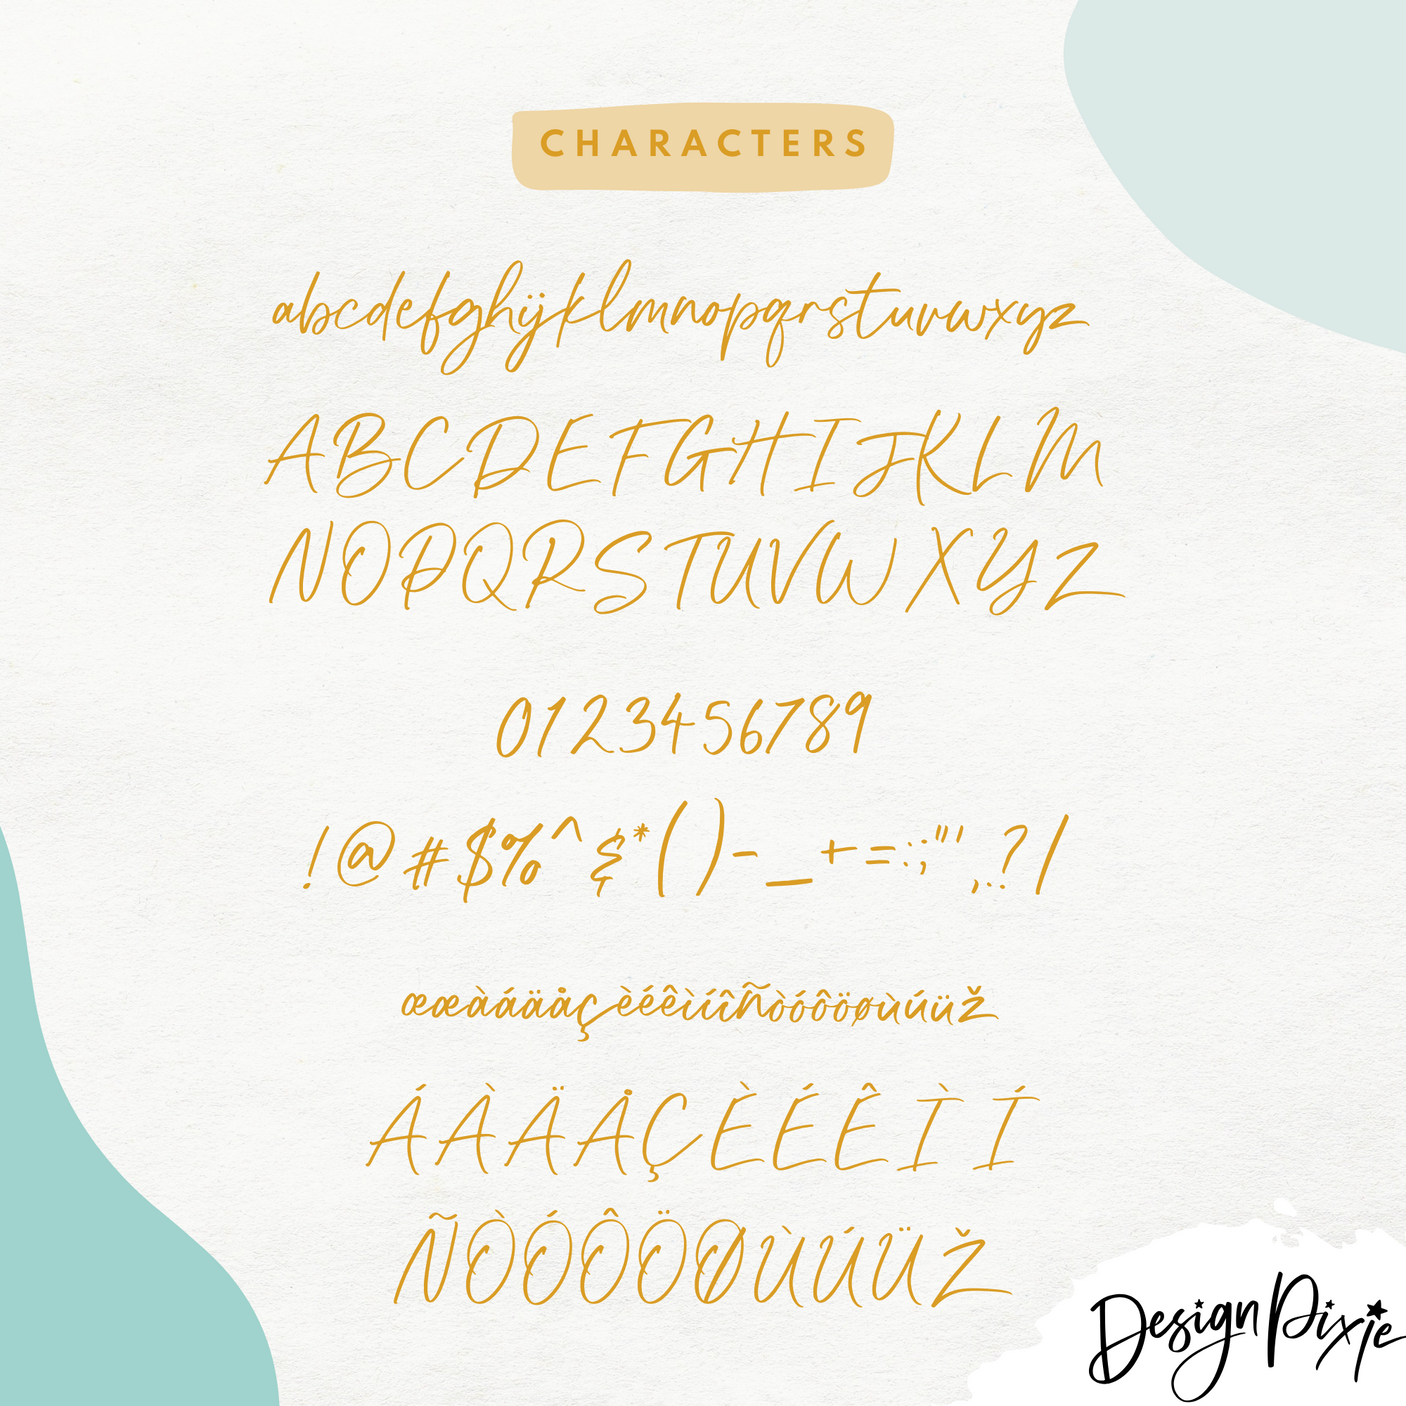 CHARACTERS
abcdefghijklmnopqrstuvwxyz
ABCDEFGHIJKLM
NOPQRSTUVWXYZ
0123456789
!@#$%^&*()-_+=:;"',.?/
œæàáäåçèéêìíîñòóôöøùúüž
ÁÀÄÅÇÈÉÊÌÍ
ÑÒÓÔÖØÙÚÜŽ
Design Pixie